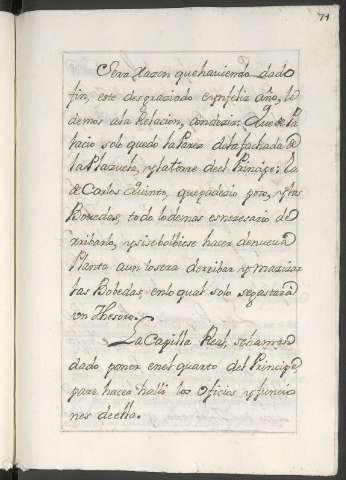 71
Sera Razon que haviendo dado
fin, este desgraciado e ynfeliz año, le
demos a la Relacion, con dezir: Que de Pa
lacio solo quedo la Pared de la fachada de
la Plazuela, y la torre de el Principe; la
de Carlos Quinto, que padezio poco, y las
Bobedas, todo lo demas es nezesario de
rribarlo, y si se bolbiese hacer de nueva
Planta aun lo sera derribar y mazizar
las Bobedas, en lo qual solo se gastará
un Thesoro.
La Capilla Real, se ha man
dado poner en el quarto del Principe
para hacer halli los Oficios y funcio
nes de ella.